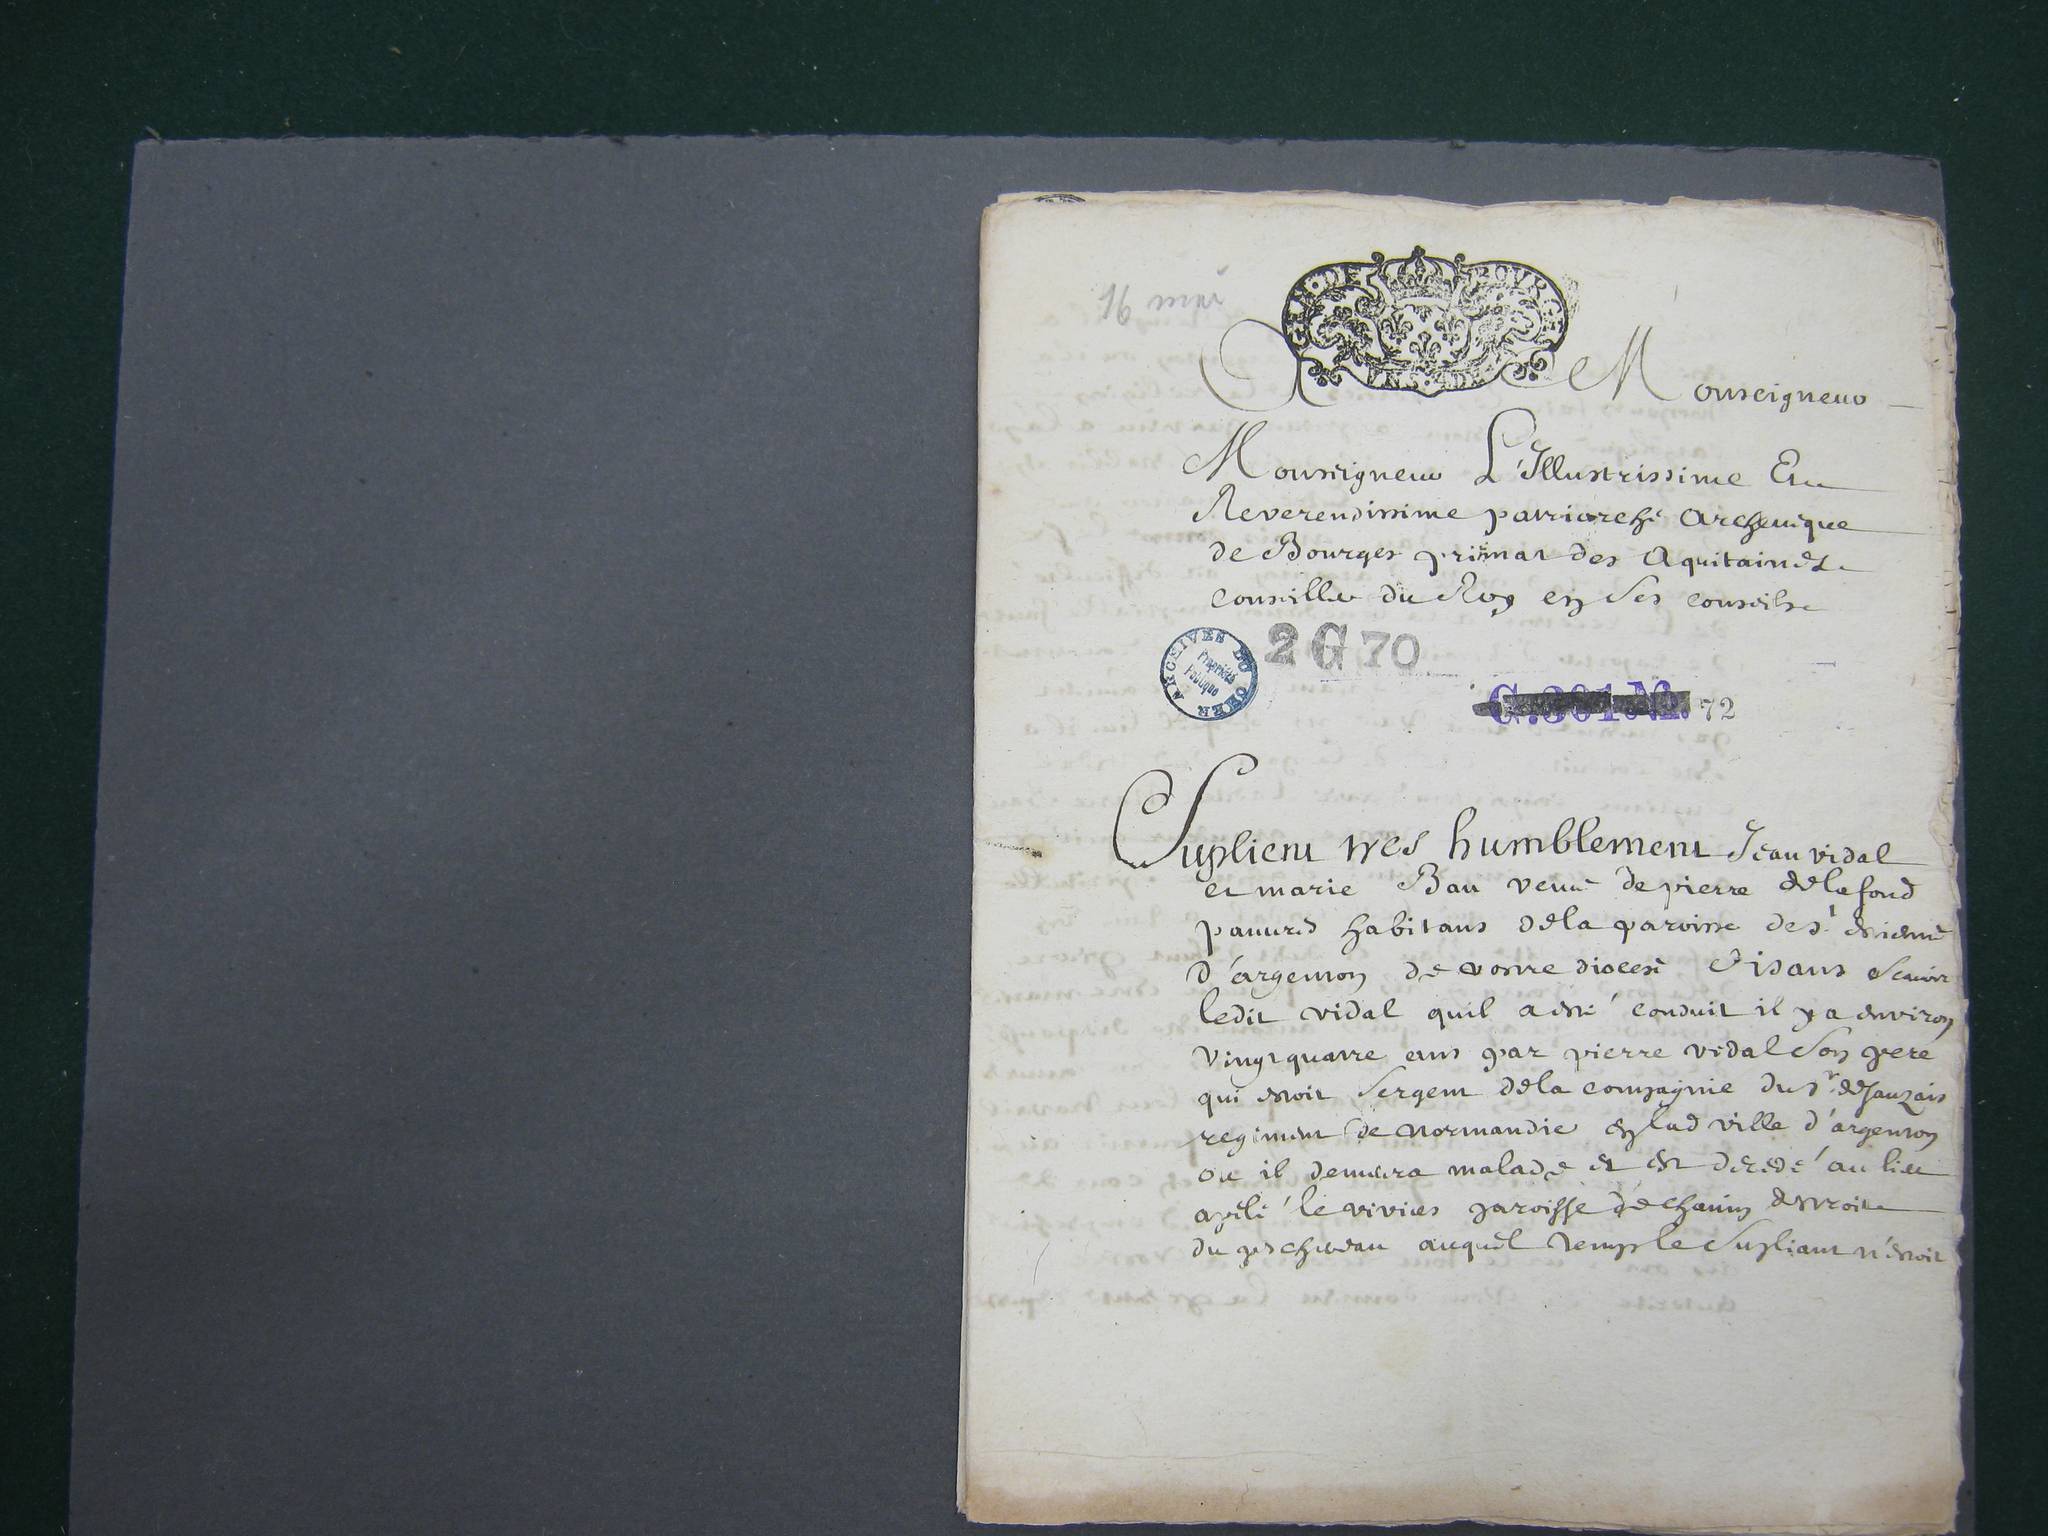 16 mai
GEN · DE BOURGES
UN S. 4 D.
Monseigneur
Monseigneur L'Illustrissime Et
Reverendissime patriarche archevêque
de Bourges primat des Aquitaines
conseiller du Roy en ses conseils
ARCHIVES DU CHER
Propriété
Publique
2 G 70
G. 301 No. 72
Suplient tres humblement Jean vidal
et marie Bau veuve de pierre delafond
pauvres habitans dela paroisse de st estienne
d'argenton de vostre diocese disans scavoir
ledit vidal quil a esté conduit il y a environ
vingtquatre ans par pierre vidal son pere
qui estoit sergent dela compagnie du sr de Jauzais
regiment de normandie en lad ville d'argenton
ou il demeura malade et est decedé au lieu
apelé le vivier paroisse de chavin destroit
du pescherau auquel temps le supliant n'estoit